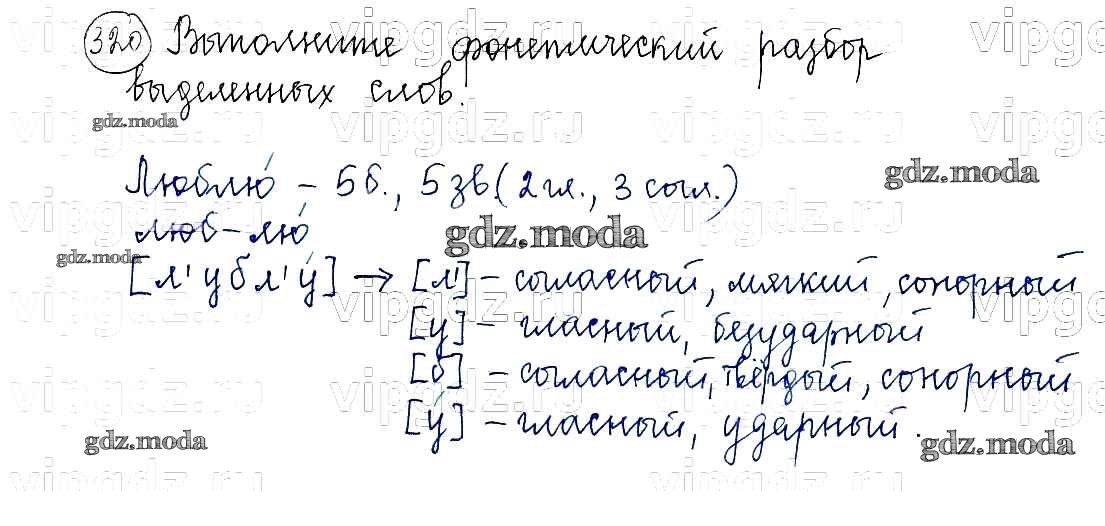 320 Выполните фонетический разбор
выделенных слов.
gdz.moda
Люблю́ – 5 б., 5 зв. (2 гл., 3 согл.)
gdz.moda
люб – лю́
gdz.moda
gdz.moda
[л'убл'у́] → [л'] – согласный, мягкий, сонорный
[у] – гласный, безударный
[б] – согласный, твёрдый, сонорный
[у́] – гласный, ударный.
gdz.moda
gdz.moda
vipgdz.ru